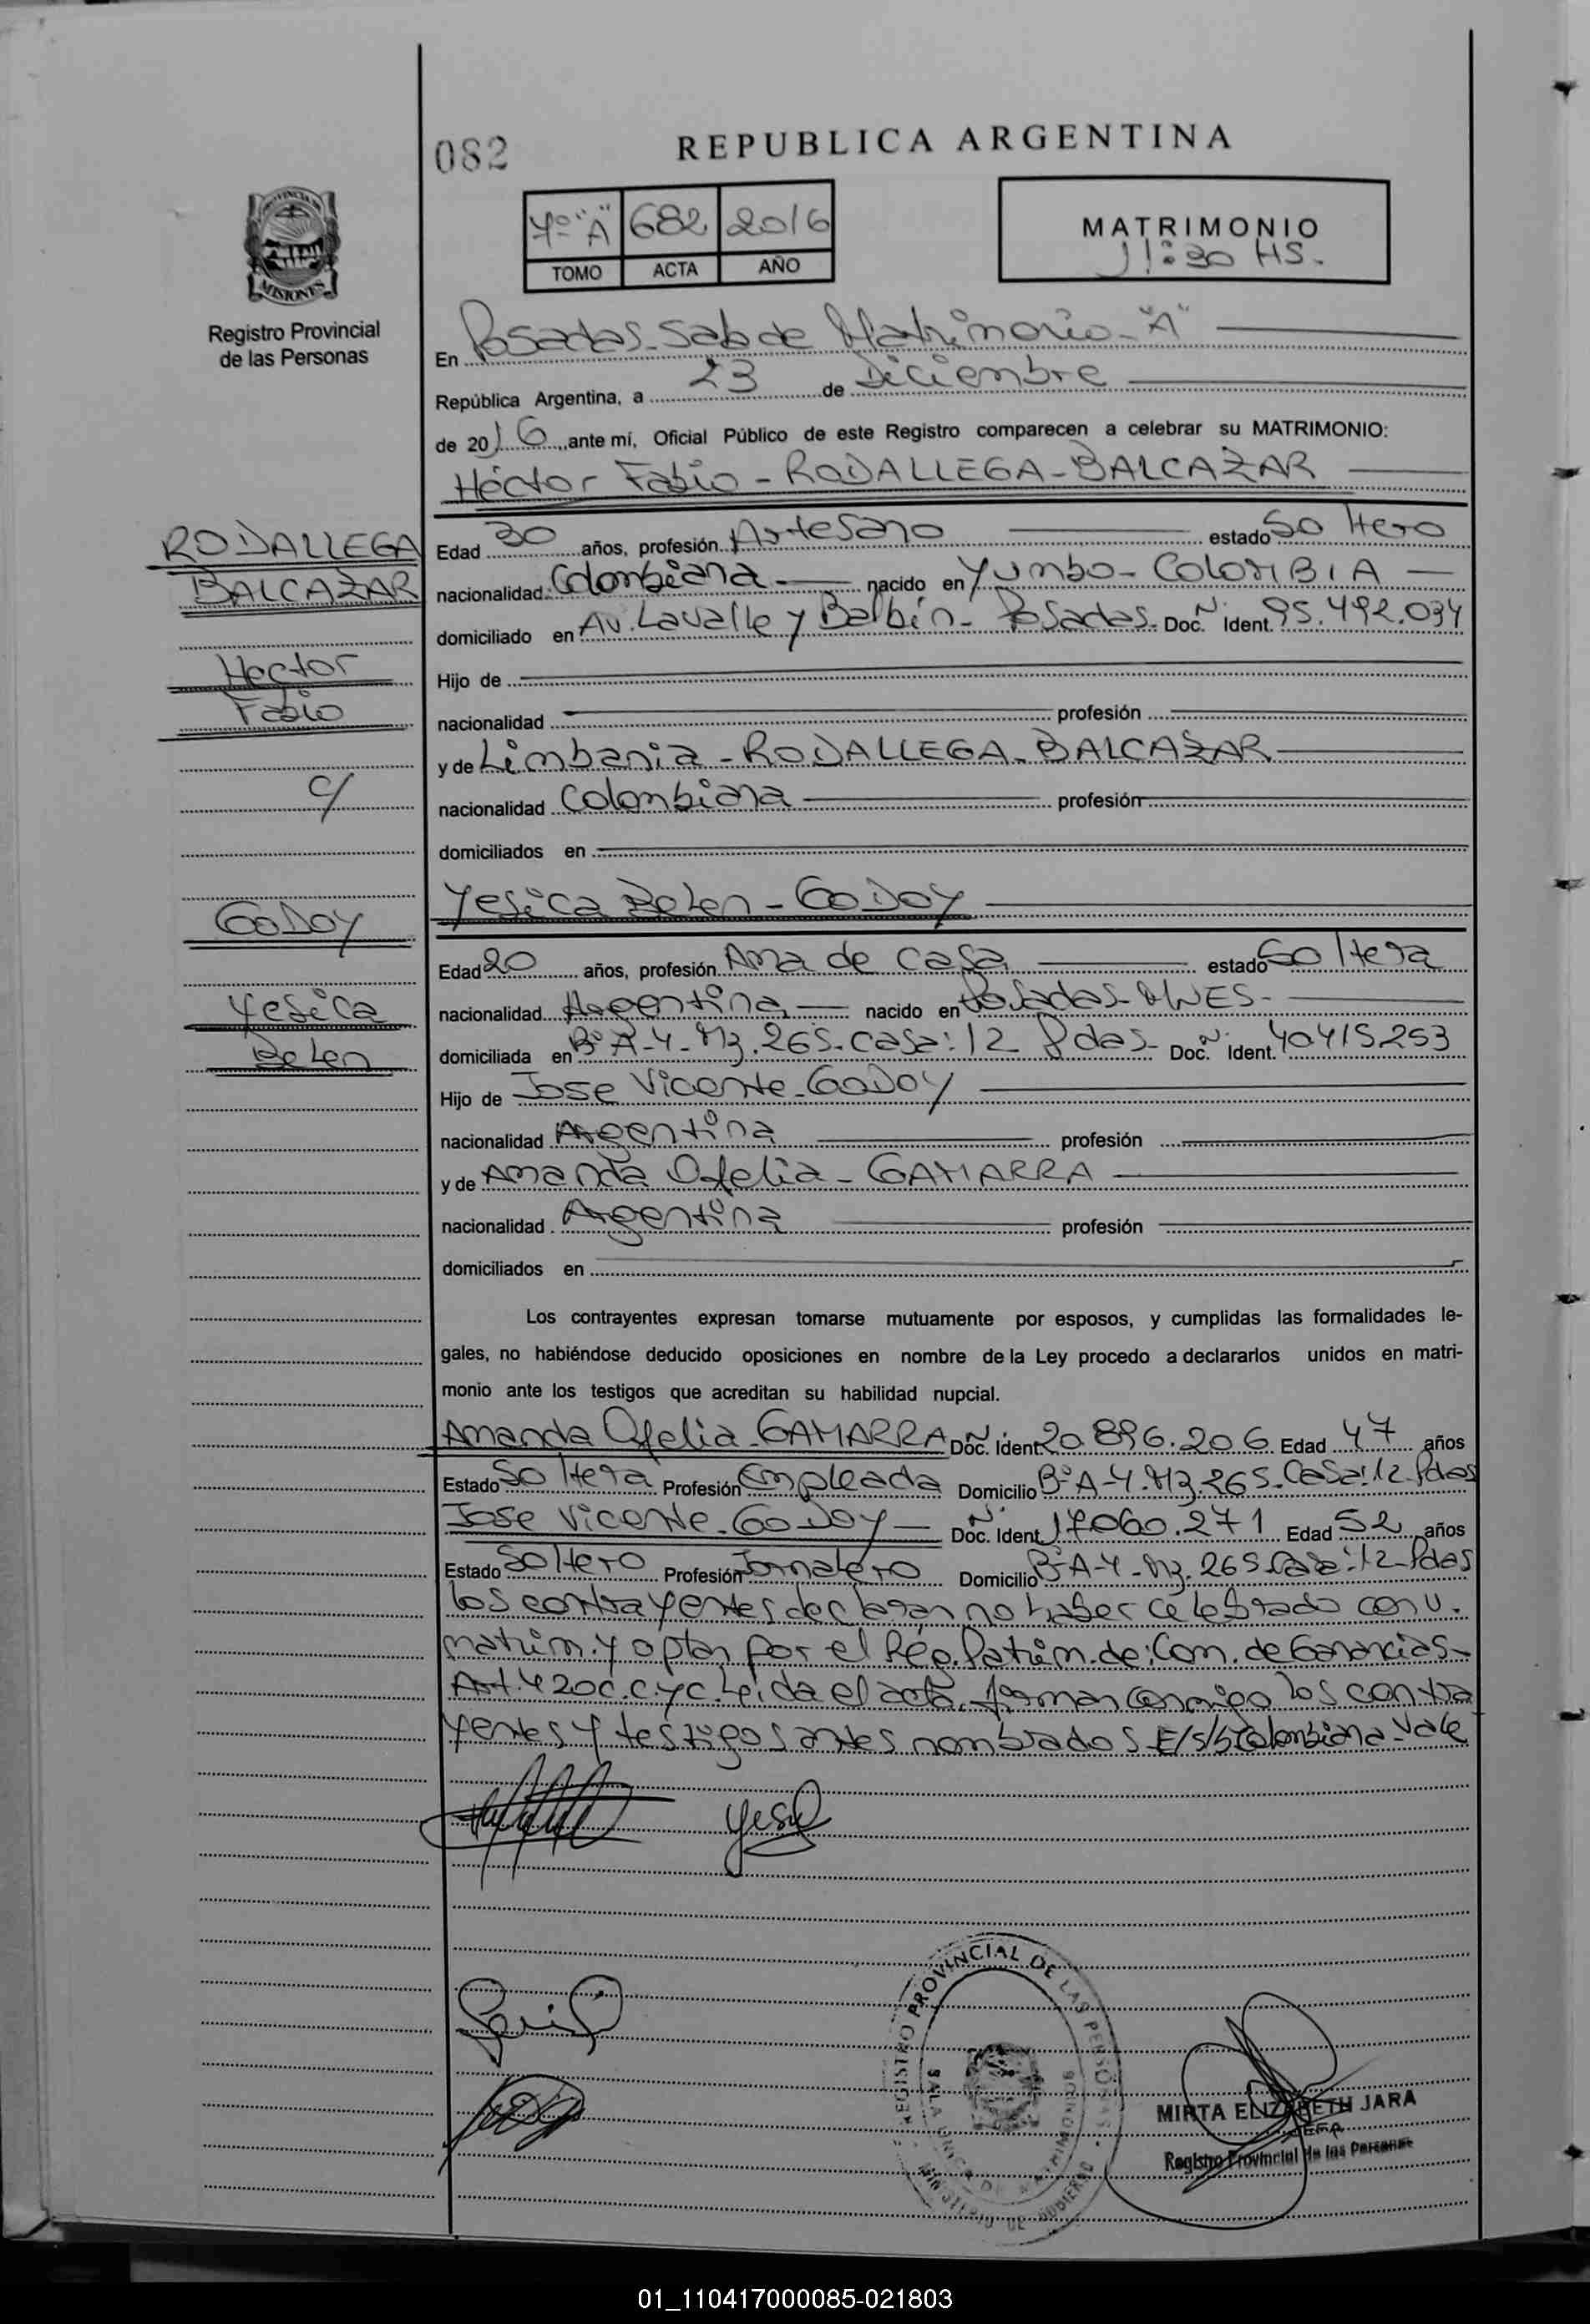 082
REPUBLICA ARGENTINA
4º "A" 682 2016
TOMO ACTA AÑO
MATRIMONIO
11:30 HS.
PROVINCIA DE
MISIONES
Registro Provincial
de las Personas
En Posadas-Sala de Matrimonio-"A"
República Argentina, a 23 de Diciembre
de 2016 ante mí, Oficial Público de este Registro comparecen a celebrar su MATRIMONIO:
Héctor Fabio-RODALLEGA-BALCAZAR
RODALLEGA
BALCAZAR
Hector
Fabio
c/
GODOY
Yesica
Belen
Edad 30 años, profesión Artesano estado Soltero
nacionalidad Colombiana nacido en Yumbo-COLOMBIA
domiciliado en Av. Lavalle y Balbín-Posadas. Doc. Nº Ident. 95.492.034
Hijo de
nacionalidad profesión
y de Limbania-RODALLEGA-BALCAZAR
nacionalidad Colombiana profesión
domiciliados en
Yesica Belen-GODOY
Edad 20 años, profesión Ama de casa estado Soltera
nacionalidad Argentina nacido en Posadas-MNES-
domiciliada en Bº A-4-Mz.265-Casa:12 Pdas- Doc. Nº Ident. 40415253
Hijo de Jose Vicente-GODOY
nacionalidad Argentina profesión
y de Amanda Ofelia-GAMARRA
nacionalidad Argentina profesión
domiciliados en
Los contrayentes expresan tomarse mutuamente por esposos, y cumplidas las formalidades le-
gales, no habiéndose deducido oposiciones en nombre de la Ley procedo a declararlos unidos en matri-
monio ante los testigos que acreditan su habilidad nupcial.
Amanda Ofelia-GAMARRA Doc. Nº Ident 20.896.206 Edad 47 años
Estado Soltera Profesión Empleada Domicilio Bº A-4-Mz.265-Casa:12-Pdas
Jose Vicente-GODOY Doc. Nº Ident 17060.271 Edad 52 años
Estado Soltero Profesión Jornalero Domicilio Bº A-4-Mz.265 Casa:12-Pdas
los contrayentes declaran no haber celebrado conv.
matrim. y optan por el Rég. Patrim. de: Com. de Ganancias-
Art. 420 C.C.yC. Leída el acta, firman conmigo los contra
yentes y testigos antes nombrados E/s/b Colombiana-Vale
Yesi
REGISTRO PROVINCIAL DE LAS PERSONAS
SALA UNICA DE MATRIMONIOS
MINISTERIO DE GOBIERNO
MIRTA ELIZABETH JARA
JEFA
Registro Provincial de las Personas
01_110417000085-021803